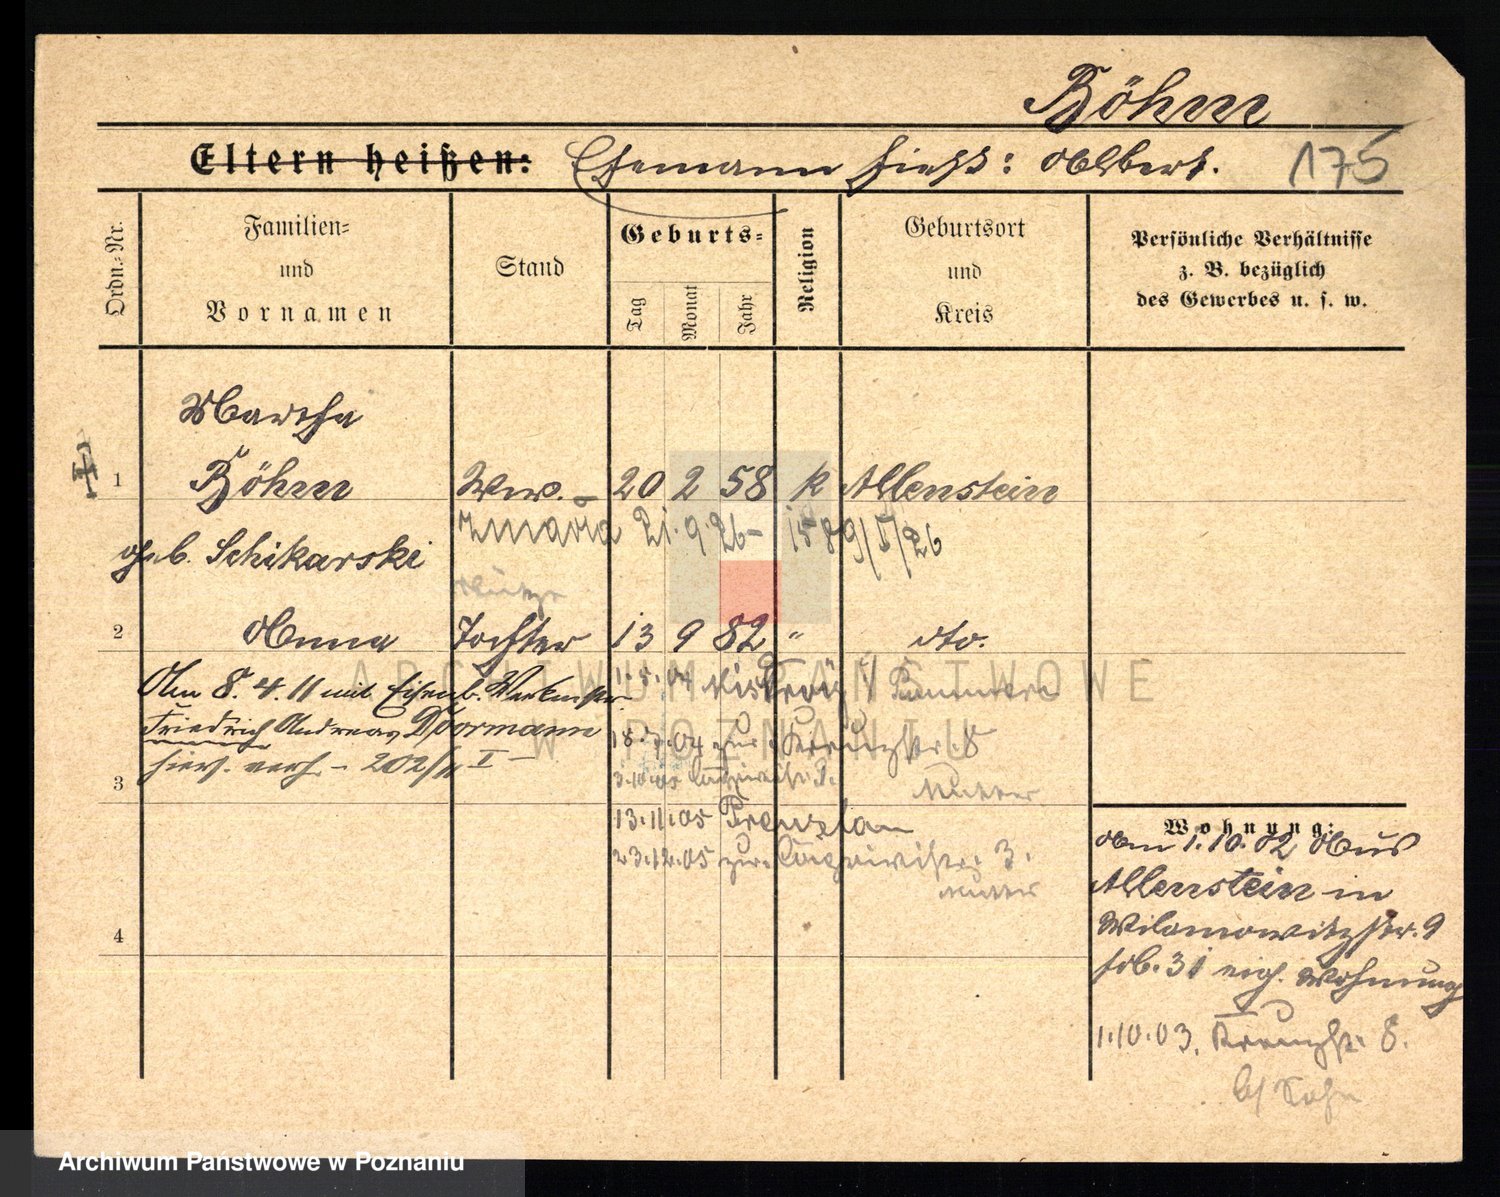 Böhm
Eltern heißen: Ehemann hieß: Albert.
175
Ordn.-Nr.
Familien-
und
Vornamen
Stand
Geburts-
Tag
Monat
Jahr
Religion
Geburtsort
und
Kreis
Persönliche Verhältnisse
z. B. bezüglich
des Gewerbes u. s. w.
Martha
1 Böhm Ww. 20 2 58 k Allenstein
zmarła 21.9.26 - 1589/V/26
geb. Schikarski
2 Anna Tochter 13 9 82 " dto.
Am 8.4.11 mit Eisenb.
1.5.04
Friedrich Andreas Doormann
hier verh. - 202/11 I -
18.7.04 zur. Kreuzstr. 8
Mutter
3 3.10.05
13.11.05 Prenzlau
23.12.05 zur. 3.
Mutter
4
Wohnung:
Am 1.10.02 Aus
Allenstein in
Wilamowitzstr. 9
eig. Wohnung
1.10.03. Kreuzstr. 8.
ARCHIWUM PAŃSTWOWE
W POZNANIU
Archiwum Państwowe w Poznaniu